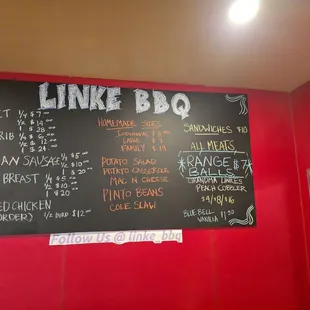 LINKE BBQ
ET 1/4 $7
1/2 $14
1 $28
RIB
1/2 $12
1 $24
AN SAUSAGE 1/4 $5
1/2 $10
1 $20
BREAST
1/2 $10
1 $20
ED CHICKEN
ORDER) 1/2 BIRD $12
HOMEMADE SIDES
INDIVIDUAL
LARGE
FAMILY
POTATO SALAD
POTATO CASSEROLE
MAC N CHEESE
PINTO BEANS
COLE SLAW
SANDWICHES $10
ALL MEATS
RANGE $7
BALLS
PEACH COBBLER
BLUE BELL
VANILLA
Follow Us @ linke_bbq